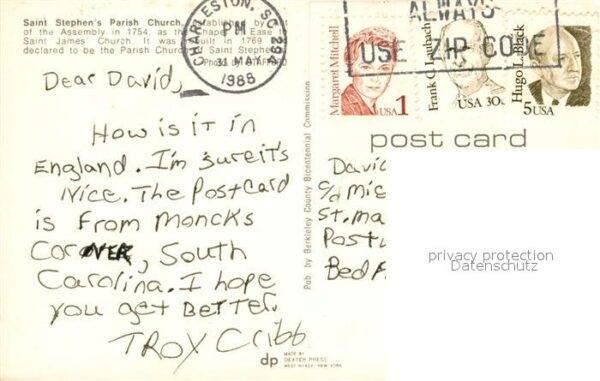 Saint Stephen's Parish Church. Established by
of the Assembly in 1754, as the Chapel of Ease
Saint James Church. It was built in 1769
declared to be the Parish Church Saint Stephen
Photo by
CHARLESTON, SC
PM
31 MAY
1988
ALWAYS
USE ZIP CODE
Margaret Mitchell
USA 1
Frank C. Laubach
USA 30c
Hugo L. Black
5 USA
post card
Dear David,
How is it in
England. I'm sure it's
Nice. The Postcard
is From Moncks
Corner, South
Carolina. I hope
you get Better.
Troy Cribb
Pub. by Berkeley County Bicentennial Commission
David
c/o
St.
Bed
privacy protection
Datenschutz
dp
MADE BY
DEXTER PRESS
WEST NYACK, NEW YORK